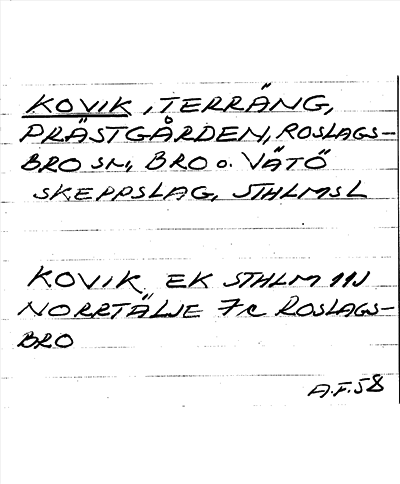 KOVIK, TERRÄNG,
PRÄSTGÅRDEN, ROSLAGS-
BRO SN, BRO o. VÄTÖ
SKEPPSLAG, STHLMS L
KOVIK EK STHLM 11J
NORRTÄLJE 7c ROSLAGS-
BRO
A.F. 58